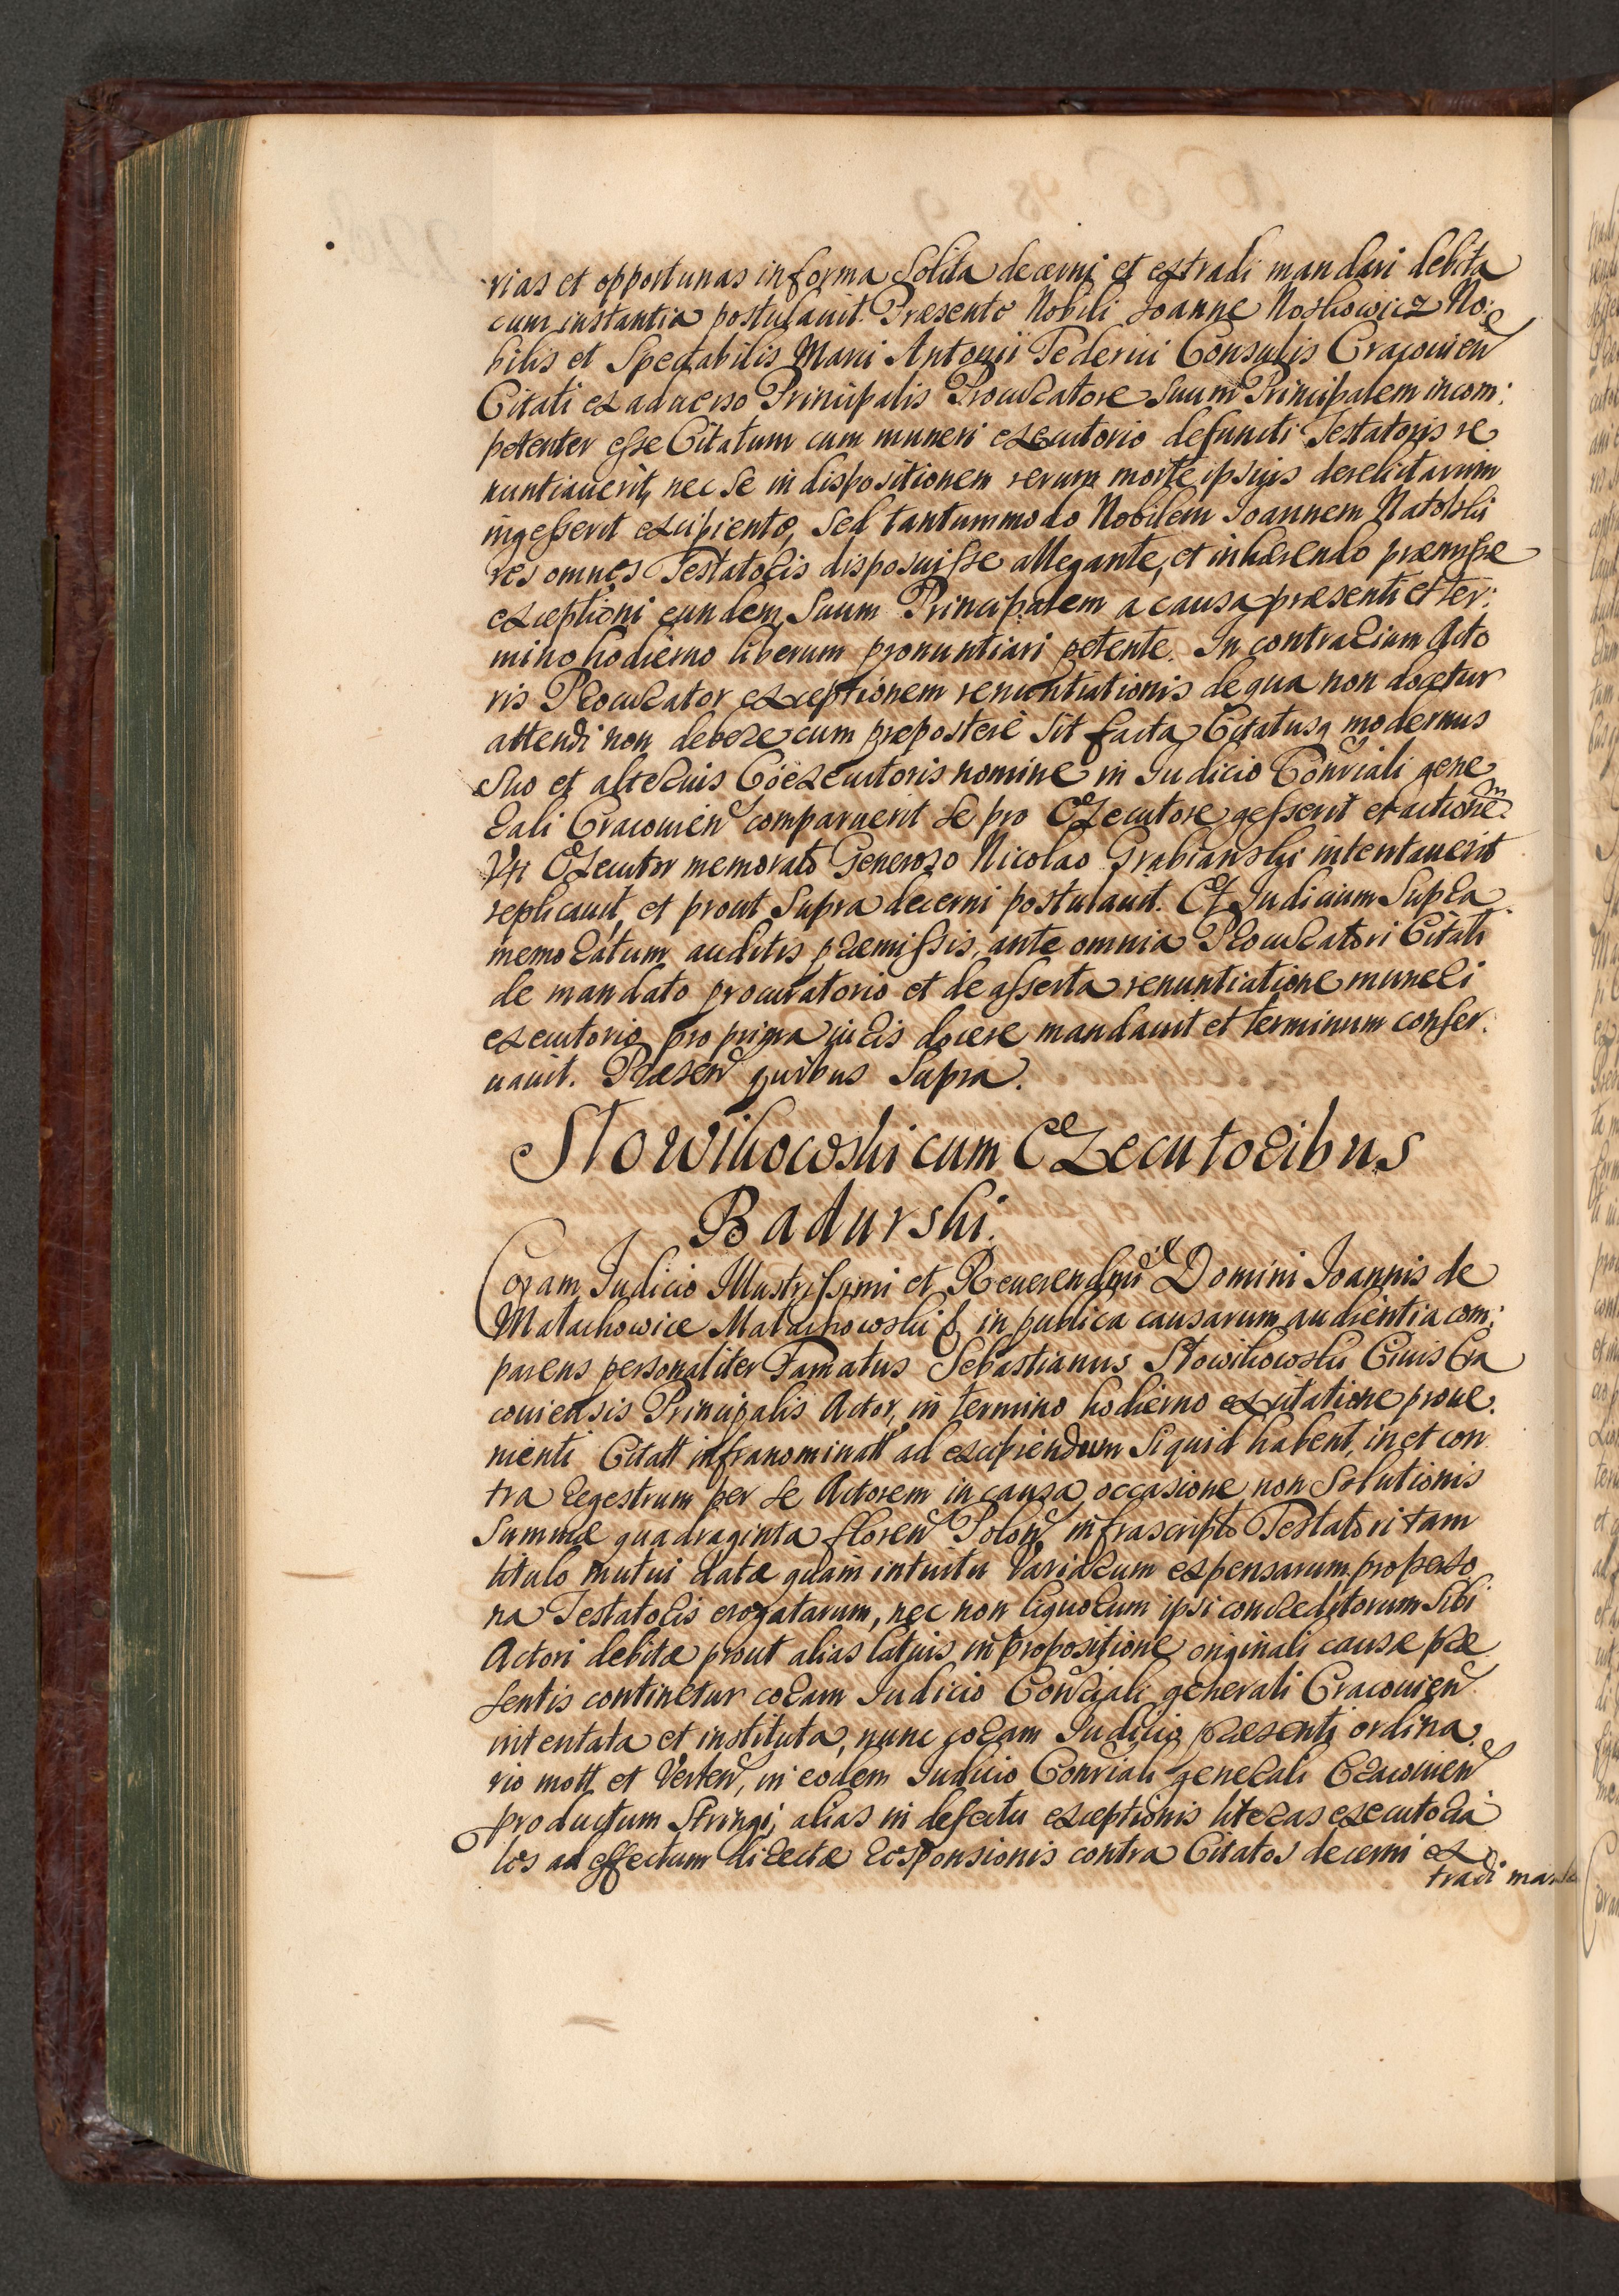 rias et opportunas in forma Solita decerni et extradi mandari debita
cum instantia postulauit. Præsente Nobili Joanne Noskowicz No:
bilis et Spectabilis Marci Antonii Federici Consulis Cracouien
Citati ex aduerso Principalis Procuratore Suum Principalem incom:
petenter esse Citatum cum muneri executorio defuncti Testatoris re
nuntiauerit, nec Se in dispositionem rerum morte ipsius derelictarum
ingesserit excipiente, Sed tantummodo Nobilem Joannem Natolski
res omnes Testatoris disposuisse allegante, et inhærendo præmissæ
exceptioni eundem Suum Principalem a causa præsenti et ter:
mino hodierno liberum pronuntiari petente. In contrarium Acto
ris Procurator exceptionem renuntiationis de qua non docetur
attendi non debere cum præposterè sit facta Citatusq modernus
Suo et alterius Coëxecutoris nomine in Iudicio Conrciali gene
rali Cracouien comparuerit Se pro Executore gesserit et actione
Vti Executor memorato Generoso Nicolao Grabianski intentauerit
replicauit, et prout Supra decerni postulauit. Et Iudicium Supra
memoratum auditis præmissis, ante omnia Procuratori Citati
de mandato procuratorio et de asserta renuntiatione muneri
executorio pro prima iuris docere mandauit et terminum conser:
uauit. Præsen quibus Supra.
Słowikowski cum Executoribus
Badurski.
Coram Iudicio Illustrissimi et Reuerendmi Domini Joannis de
Małachowice Małachowski & in publica causarum audientia com:
parens personaliter Famatus Sebastianus Słowikowski Ciuis Cra
couiensis Principalis Actor, in termino hodierno ex citatione proue:
nienti Citatt infranominatt ad excipiendum Siquid habent, in et con
tra regestrum per se Actorem in causa occasione non Solutionis
Summæ quadraginta floren Polon infrascripto Testatori tam
titulo mutui datæ quàm intuitu Variarum expensarum pro perso
na Testatoris erogatarum, nec non liquorum ipsi concreditorum Sibi
Actori debitæ prout alias latius in propositione originali causæ præ
sentis continetur coram Iudicio Conrciali generali Cracouien
intentata et instituta, nunc coram Iudicio præsenti ordina:
rio mott et Verten, in eodem Iudicio Conrciali generali Cracouien
productum Stringi, alias in defectu exceptionis literas executoria
les ad effectum directæ responsionis contra Citatos decerni ex
tradi man